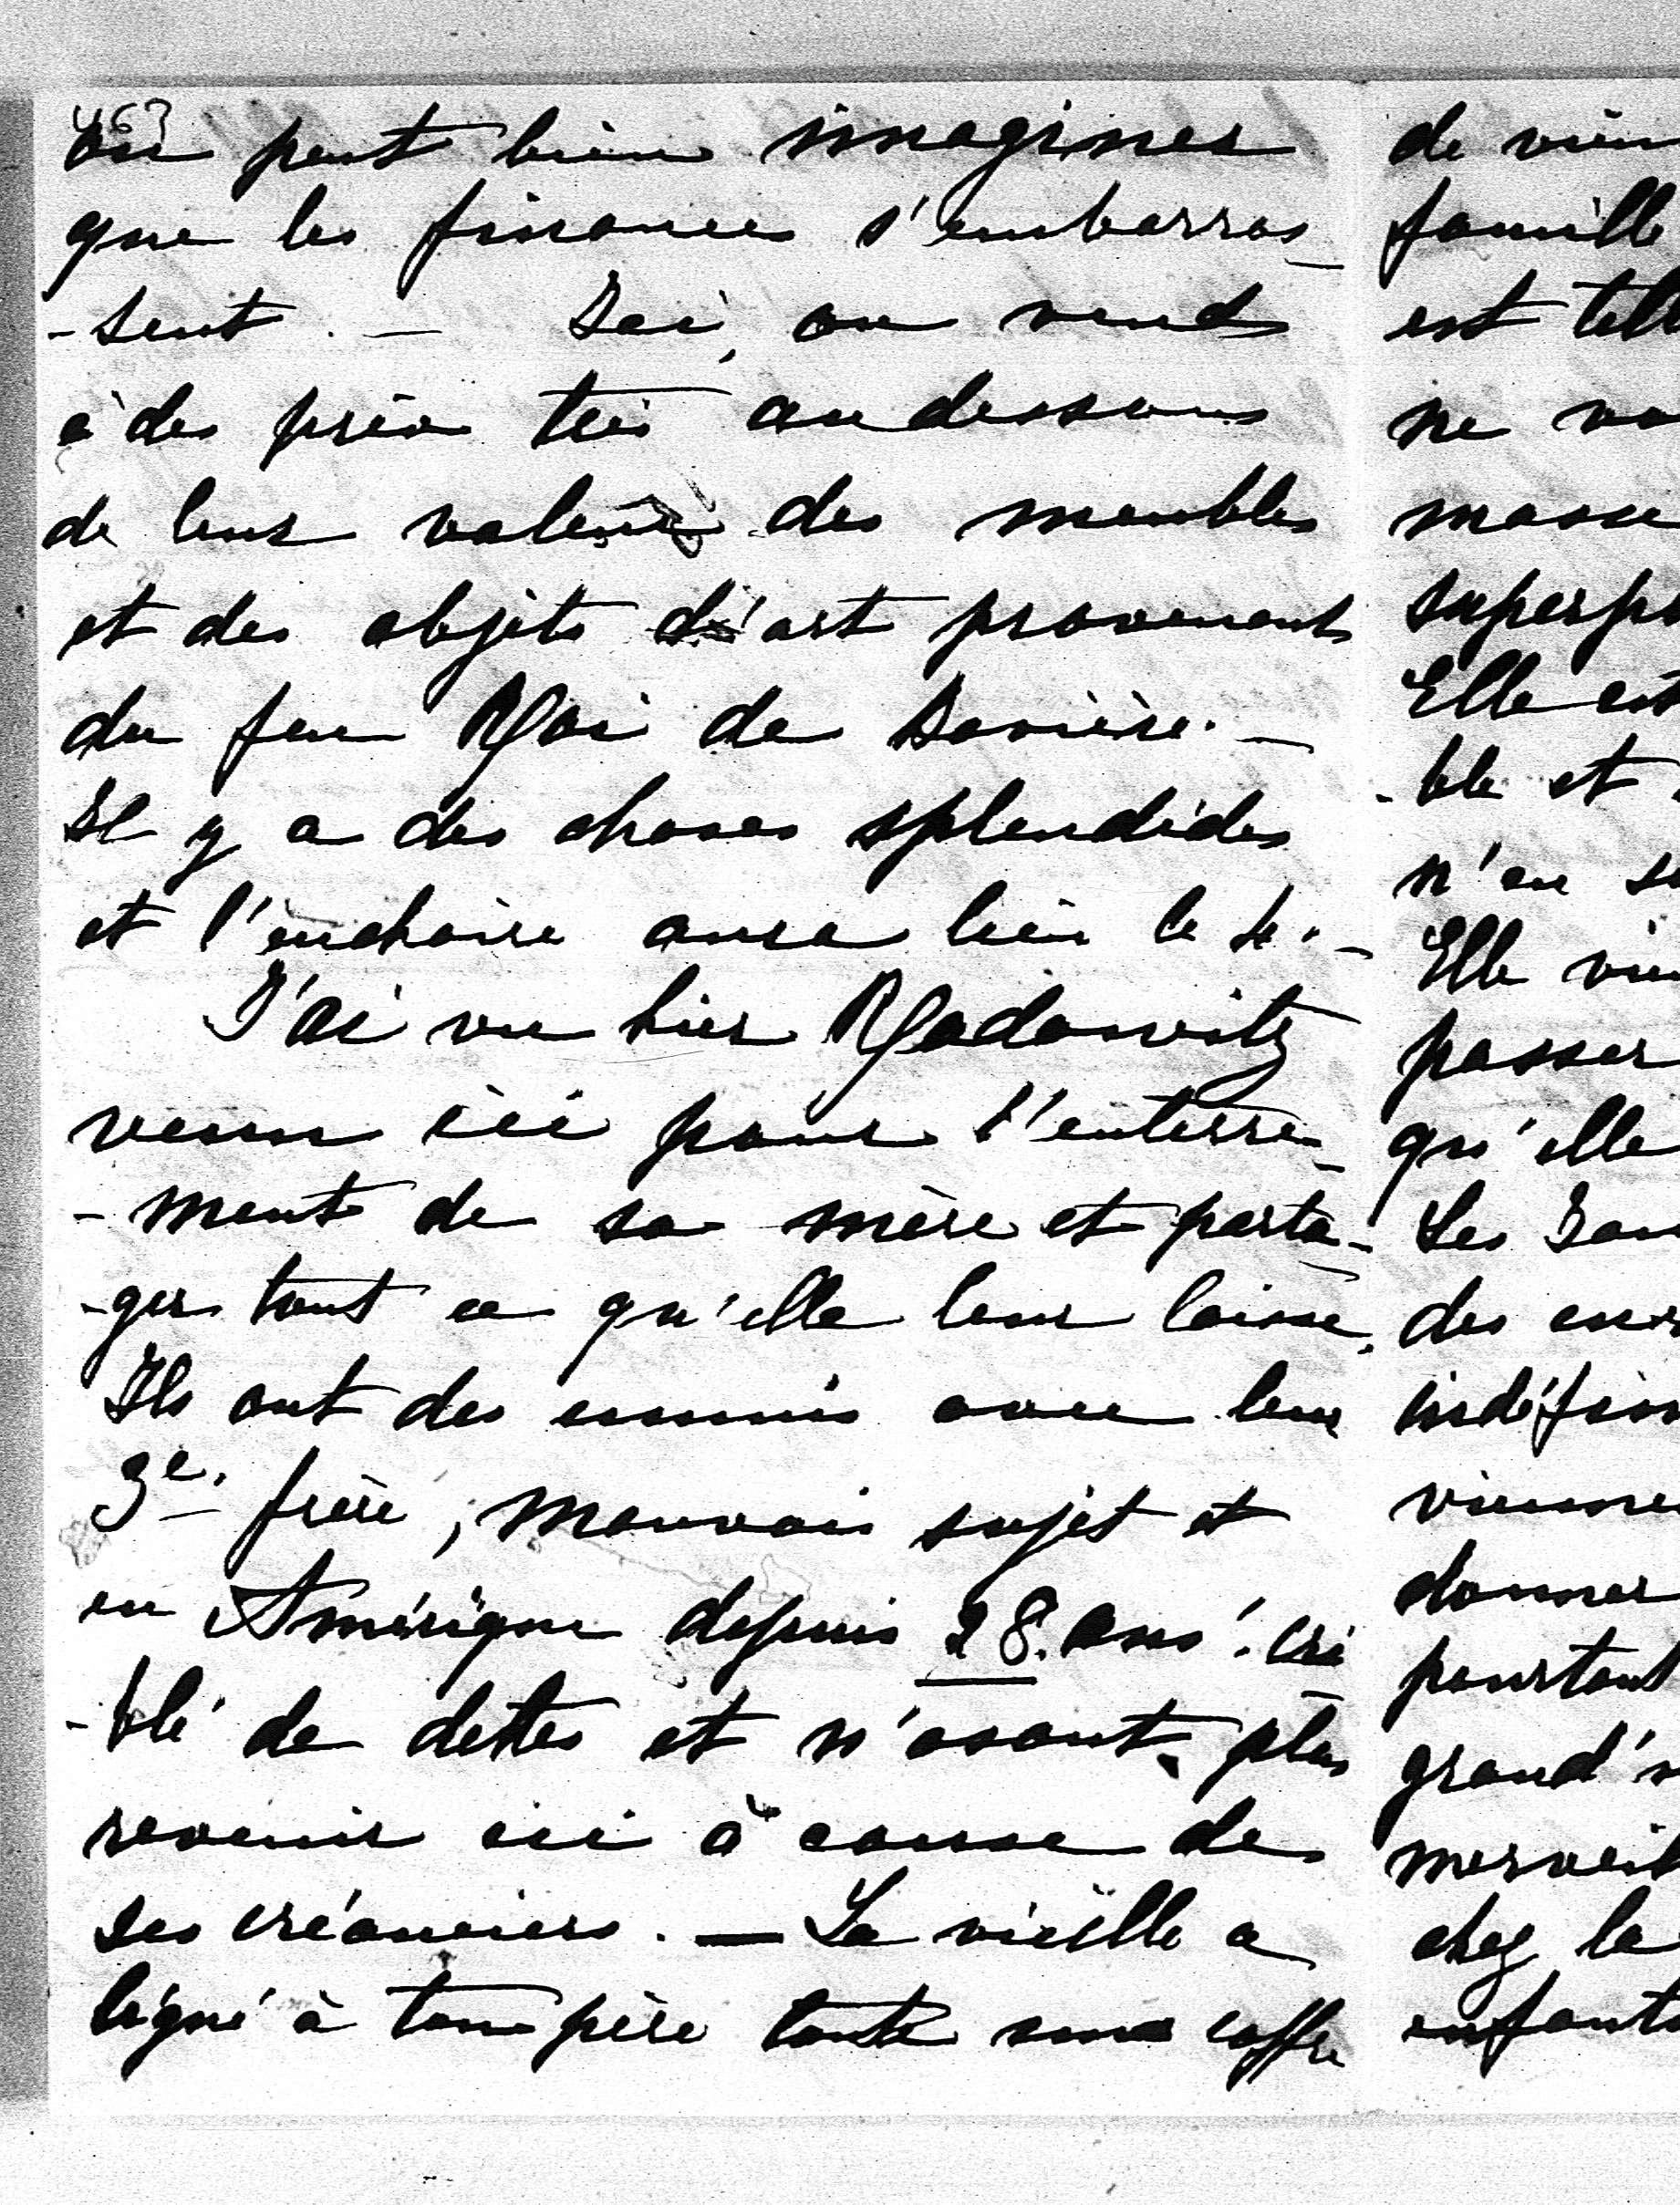 463
On peut bien imaginer
que les finances s'embarras-
-sent. — Ici, on vend
à des prix très au dessous
de leur valeur des meubles
et des objets d'art provenant
du feu Roi de Bavière. —
Il y a des choses splendides
et l'enchère aura lieu le 4. —
J'ai vu hier Radowitz
venu ici pour l'enterre-
-ment de sa mère et parta-
-ger tout ce qu'elle leur laisse.
Ils ont des ennuis avec leur
3e. frère, mauvais sujet et
en Amérique depuis 28. ans! cri-
-blé de dettes et n'osant plus
revenir ici à cause de
ses créanciers. — La vieille a
légué à ton père toute une coffre
de vien
famille
est tell
ne vo
masse
superpo
Elle est
-ble et
n'en se
Elle vie
passer
qu'elle
Les
des
indéfin
vienne
donner
pourtant
grand'm
merveil
chez la
enfants